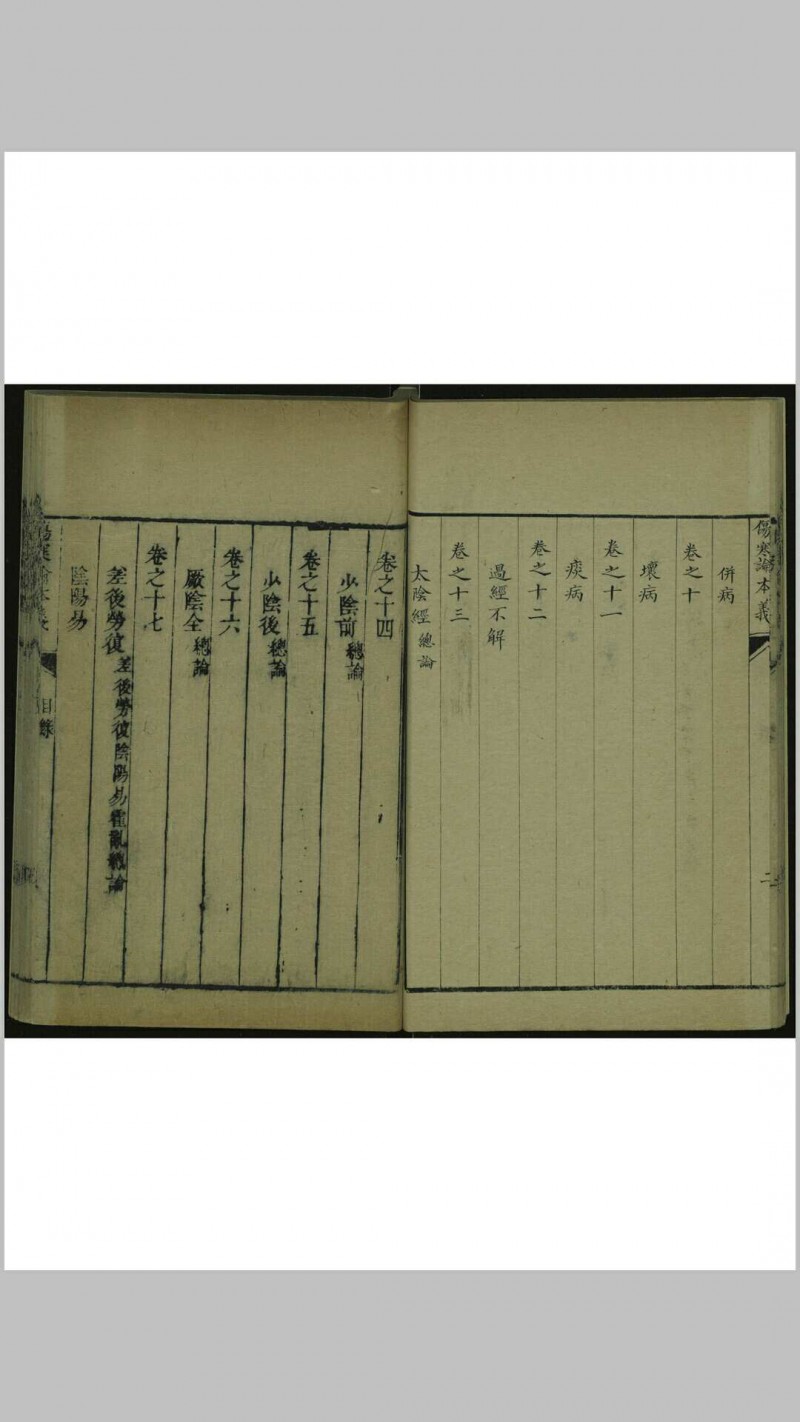 傷寒論本義
二
併病
卷之十
壞病
卷之十一
痰病
卷之十二
過經不解
卷之十三
太陰經 總論
卷之十四
少陰前 總論
卷之十五
少陰後 總論
卷之十六
厥陰全 總論
卷之十七
差後勞復 差後勞復陰陽易霍亂總論
陰陽易
傷寒論本義
目錄